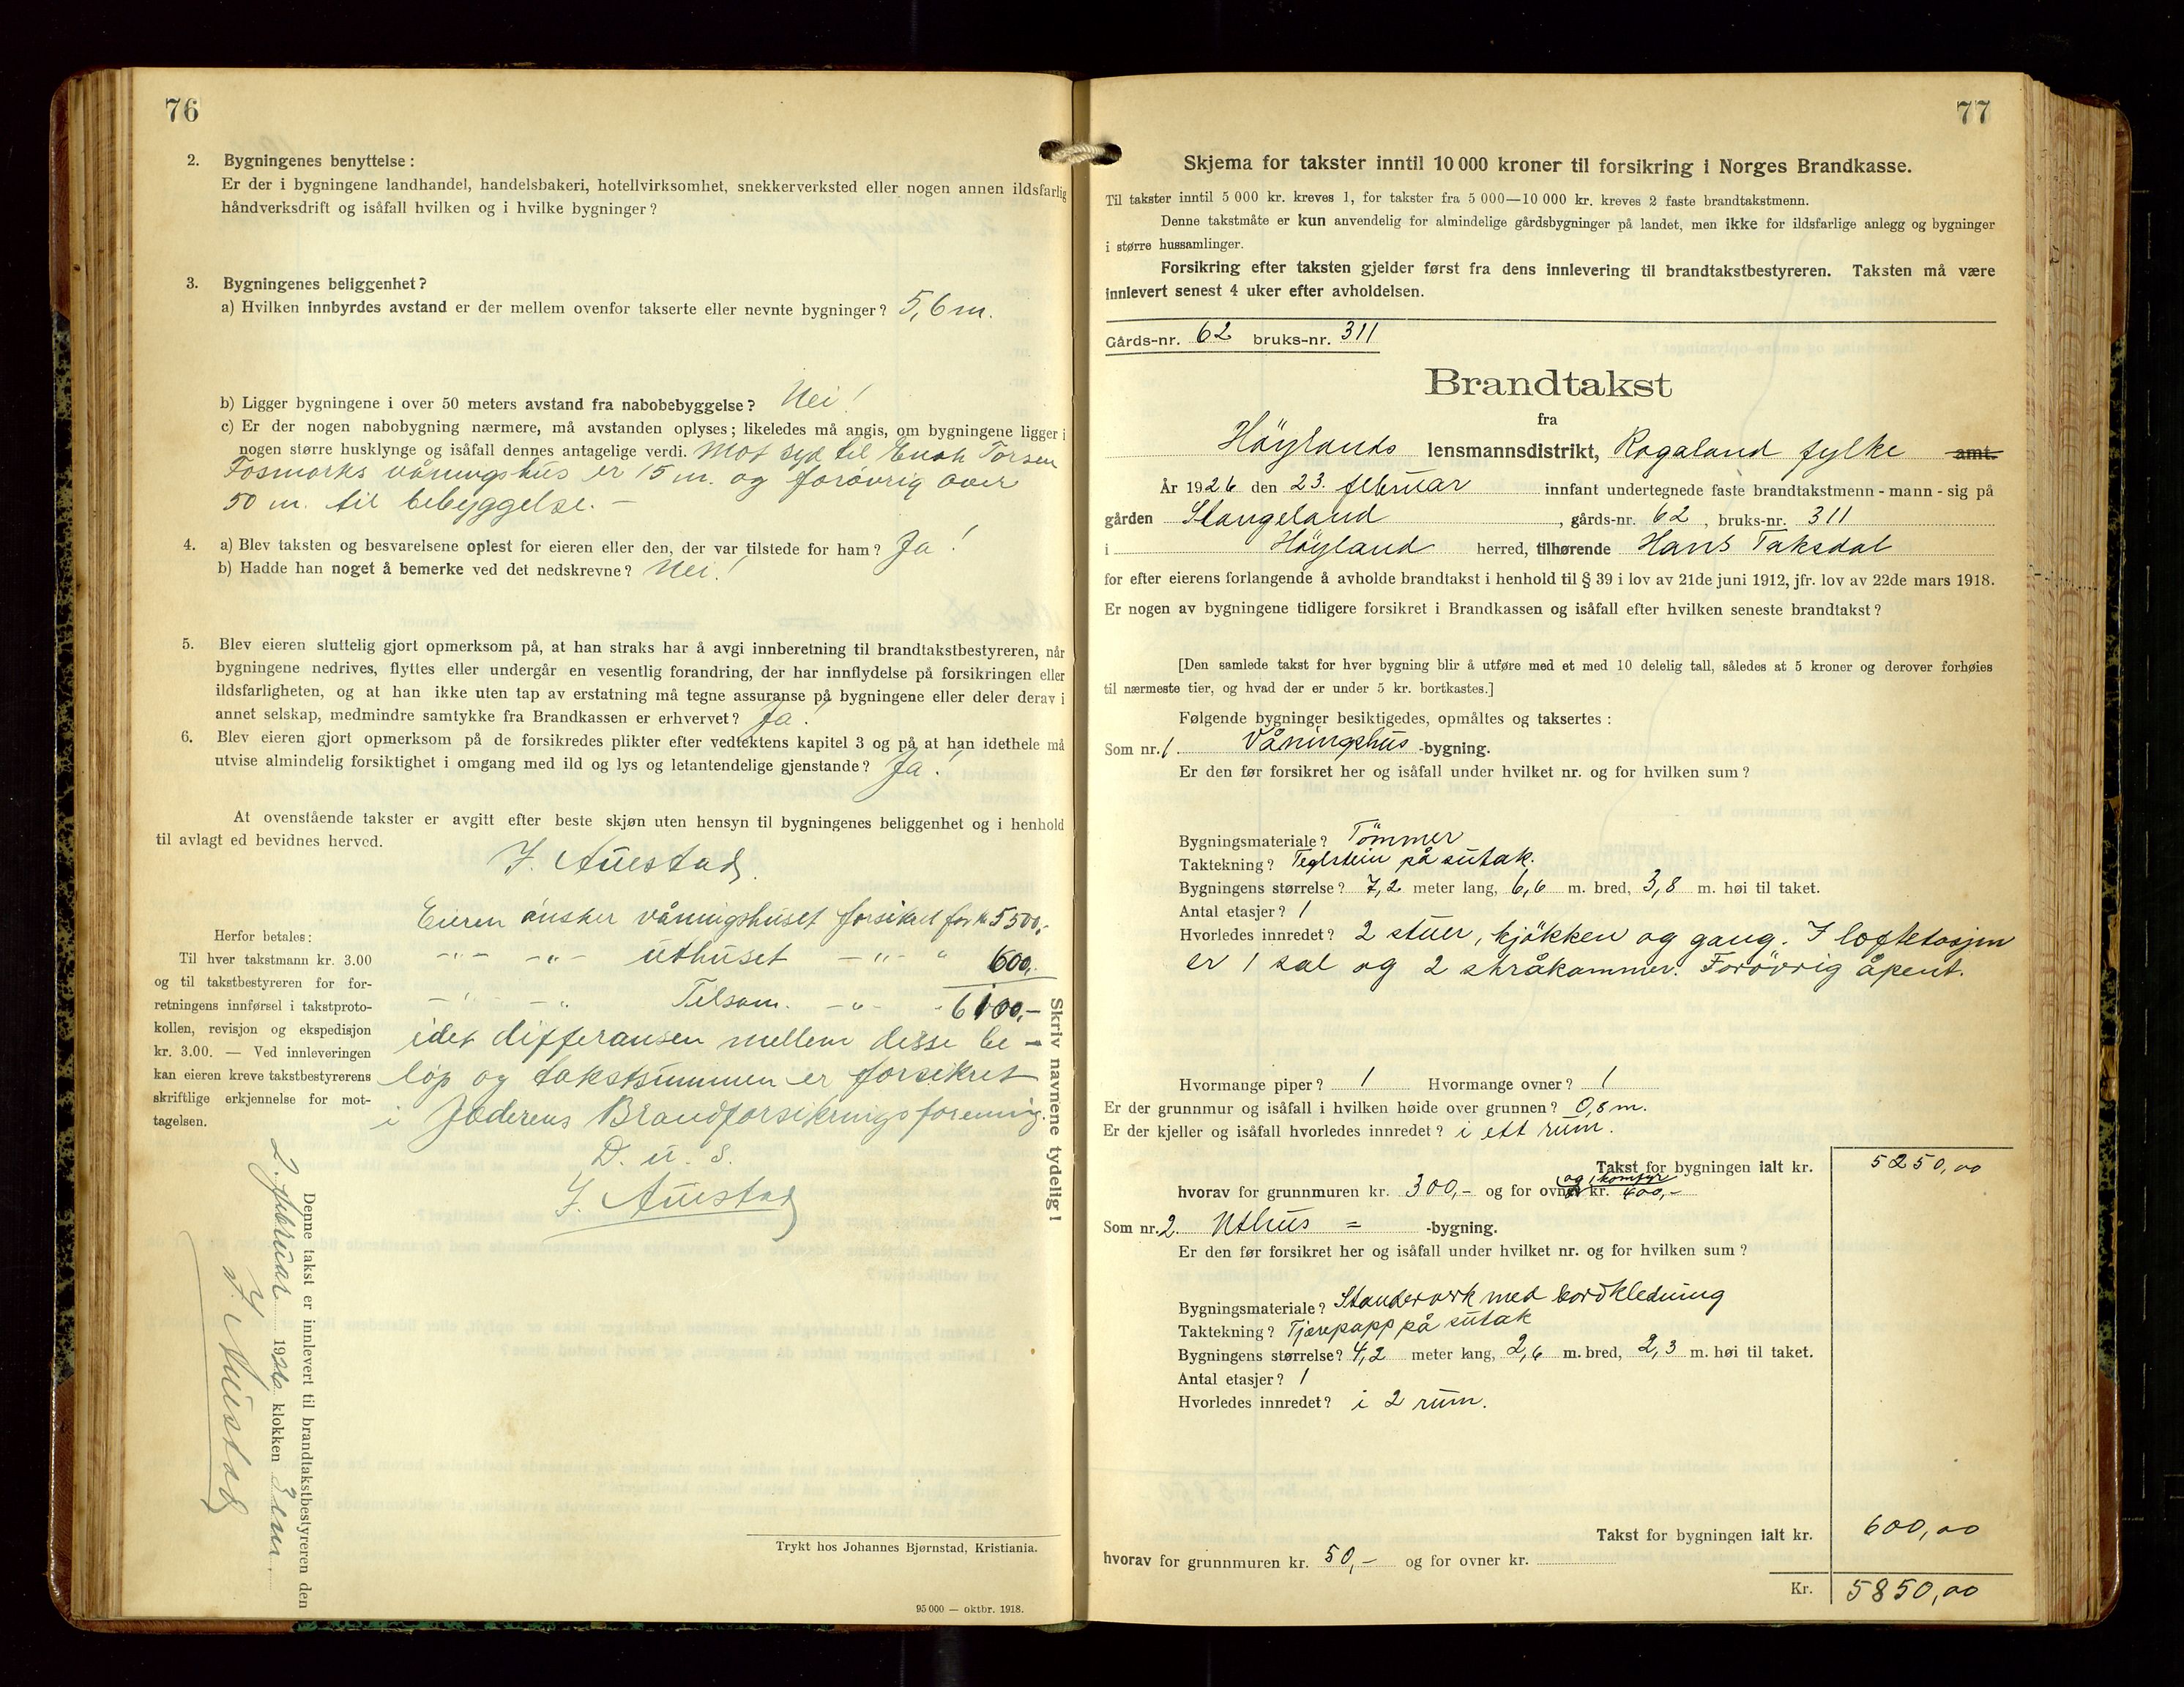 76
2. Bygningenes benyttelse :
Er der i bygningene landhandel, handelsbakeri, hotellvirksomhet, snekkerverksted eller nogen annen ildsfarlig
håndverksdrift og isåfall hvilken og i hvilke bygninger ?
3. Bygningenes beliggenhet ?
a) Hvilken innbyrdes avstand er der mellem ovenfor takserte eller nevnte bygninger ? 5,6 m.
b) Ligger bygningene i over 50 meters avstand fra nabobebyggelse ? Nei !
c) Er der nogen nabobygning nærmere, må avstanden oplyses ; likeledes må angis, om bygningene ligger i
nogen større husklynge og isåfall dennes antagelige verdi. Mot syd til Enok Torsen
Fosmarks våningshus er 15 m. og forøvrig over
50 m. til bebyggelse. -
4. a) Blev taksten og besvarelsene oplest for eieren eller den, der var tilstede for ham ? Ja !
b) Hadde han noget å bemerke ved det nedskrevne ? Nei !
5. Blev eieren sluttelig gjort opmerksom på, at han straks har å avgi innberetning til brandtakstbestyreren, når
bygningene nedrives, flyttes eller undergår en vesentlig forandring, der har innflydelse på forsikringen eller
ildsfarligheten, og at han ikke uten tap av erstatning må tegne assuranse på bygningene eller deler derav i
annet selskap, medmindre samtykke fra Brandkassen er erhvervet ? Ja !
6. Blev eieren gjort opmerksom på de forsikredes plikter efter vedtektens kapitel 3 og på at han idethele må
utvise almindelig forsiktighet i omgang med ild og lys og letantendelige gjenstande ? Ja !
At ovenstående takster er avgitt efter beste skjøn uten hensyn til bygningenes beliggenhet og i henhold
til avlagt ed bevidnes herved.
J. Auestad.
Eieren ønsker våningshuset forsikret for kr 5500,-
-"- -"- uthuset -"- " 600,-
-"- -"- Tilsam. -"- - 6100,-
idet differansen mellem desse be-
løp og takstsummen er forsikret
i Jæderens Brandforsikringsforening.
D. u. s.
J. Auestad
Herfor betales :
Til hver takstmann kr. 3.00
og til takstbestyreren for for-
retningens innførsel i takstproto-
kollen, revisjon og ekspedisjon
kr. 3.00. — Ved innleveringen
kan eieren kreve takstbestyrerens
skriftlige erkjennelse for mot-
tagelsen.
Skriv navnene tydelig !
Denne takst er innlevert til brandtakstbestyreren den
2. februar 1926 klokken 3 em.
J. Auestad
Trykt hos Johannes Bjørnstad, Kristiania.
95 000 — oktbr. 1918.
77
Skjema for takster inntil 10 000 kroner til forsikring i Norges Brandkasse.
Til takster inntil 5 000 kr. kreves 1, for takster fra 5 000—10 000 kr. kreves 2 faste brandtakstmenn.
Denne takstmåte er kun anvendelig for almindelige gårdsbygninger på landet, men ikke for ildsfarlige anlegg og bygninger
i større hussamlinger.
Forsikring efter taksten gjelder først fra dens innlevering til brandtakstbestyreren. Taksten må være
innlevert senest 4 uker efter avholdelsen.
Gårds-nr. 62 bruks-nr. 311
Brandtakst
fra
Høylands lensmannsdistrikt, Rogaland fylke amt.
År 1926 den 23. februar innfant undertegnede faste brandtakstmenn - mann - sig på
gården Stangeland, gårds-nr. 62, bruks-nr. 311
i Høyland herred, tilhørende Hans Taksdal
for efter eierens forlangende å avholde brandtakst i henhold til § 39 i lov av 21de juni 1912, jfr. lov av 22de mars 1918.
Er nogen av bygningene tidligere forsikret i Brandkassen og isåfall efter hvilken seneste brandtakst ?
[Den samlede takst for hver bygning blir å utføre med et med 10 delelig tall, således at 5 kroner og derover forhøies
til nærmeste tier, og hvad der er under 5 kr. bortkastes.]
Følgende bygninger besiktigedes, opmåltes og taksertes :
Som nr. 1. Våningshus -bygning.
Er den før forsikret her og isåfall under hvilket nr. og for hvilken sum ?
Bygningsmateriale ? Tømmer
Taktekning ? Teglstein på sutak.
Bygningens størrelse ? 7,2 meter lang, 6,6 m. bred, 3,8 m. høi til taket.
Antal etasjer ? 1
Hvorledes innredet ? 2 stuer, kjøkken og gang. I loftetasjen
er 1 sal og 2 skråkammer. Forøvrig åpent.
Hvormange piper ? 1 Hvormange ovner ? 1
Er der grunnmur og isåfall i hvilken høide over grunnen ? 0,8 m.
Er der kjeller og isåfall hvorledes innredet ? i ett rum.
Takst for bygningen ialt kr. 5250,00
og komfyr
hvorav for grunnmuren kr. 300,- og for ovner kr. 400,-
Som nr. 2. Uthus = -bygning.
Er den før forsikret her og isåfall under hvilket nr. og for hvilken sum ?
Bygningsmateriale ? Standerverk med bordkledning
Taktekning ? Tjærepapp på sutak
Bygningens størrelse ? 4,2 meter lang, 2,6 m. bred, 2,3 m. høi til taket.
Antal etasjer ? 1
Hvorledes innredet ? i 2 rum.
Takst for bygningen ialt kr. 600,00
hvorav for grunnmuren kr. 50,- og for ovner kr.
Kr. 5850,00